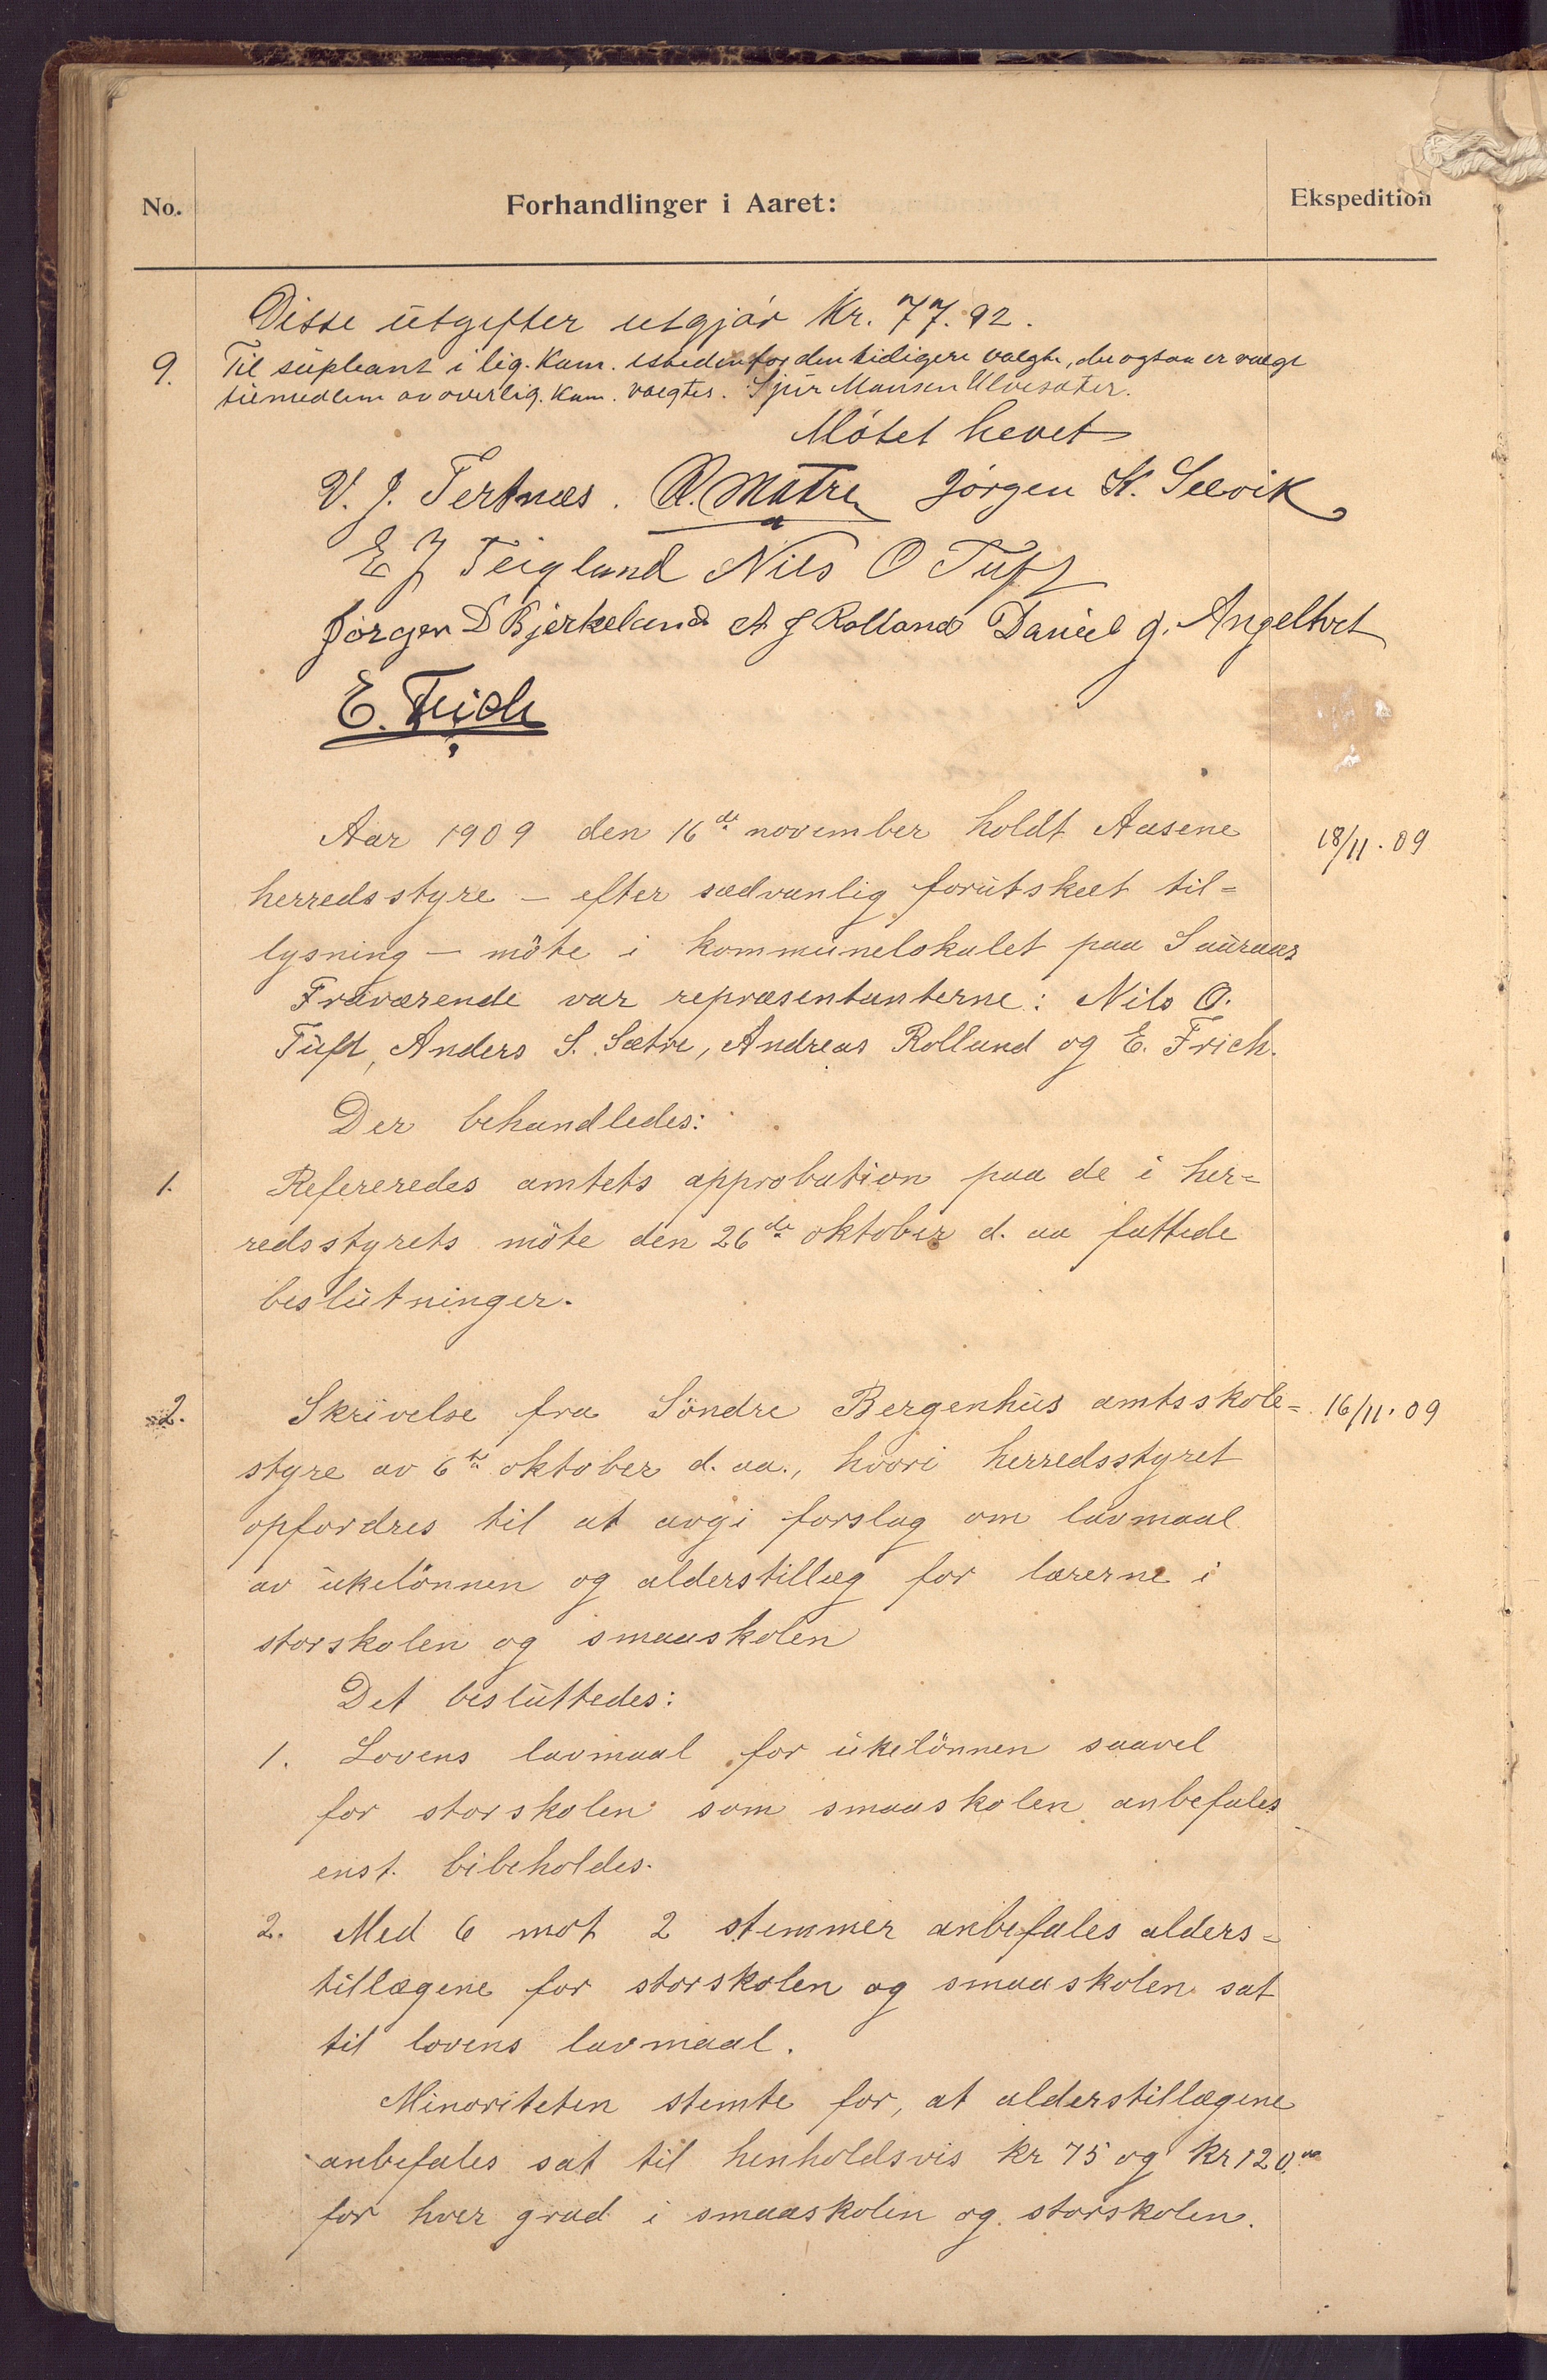 No. Forhandlinger i Aaret: Ekspedition
Disse utgifter utgjør Kr. 77.92.
9. Til supleant i lig. Kom. istedenfor den tidligere valgte, der ogsaa er valgt
til medlem av overlig. Kom. valgtes. Sjur Monsen Ulvesæter.
Møtet hevet
V. J. Tertnæs. A. Matre Jørgen K. Sævik
E J Teigland Nils O Tuft
Jørgen D Bjerkeland A J Rolland Daniel J. Angeltvet
E. Frich
Aar 1909 den 16de november holdt Aasene 18/11.09
herredsstyre – efter sædvanlig forutskeet til=
lysning – møte i kommunelokalet paa Sauraas
Fraværende var repræsentanterne: Nils O.
Tuft, Anders S. Sætre, Andreas Rolland og E. Frich.
Der behandledes:
1. Refereredes amtets approbation paa de i her=
redsstyrets møte den 26de oktober d. aa fattede
beslutninger.
2. Skrivelse fra Söndre Bergenhus amtsskole= 16/11.09
styre av 6te oktober d. aa., hvori herredsstyret
opfordres til at avgi forslag om lavmaal
av ukelönnen og alderstillæg for lærerne i
storskolen og smaaskolen
Det besluttedes:
1. Lovens lavmaal for ukelönnen saavel
for storskolen som smaaskolen anbefales
enst. bibeholdes.
2. Med 6 mot 2 stemmer anbefales alders=
tillægene for storskolen og smaaskolen sat
til lovens lavmaal.
Minoriteten stemte for, at alderstillægene
anbefales sat til henholdsvis kr 75 og kr 120.00
for hver grad i smaaskolen og storskolen.